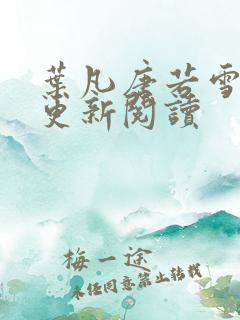 葉凡唐若雪
更新閱讀
梅一途
未经同意禁止转载